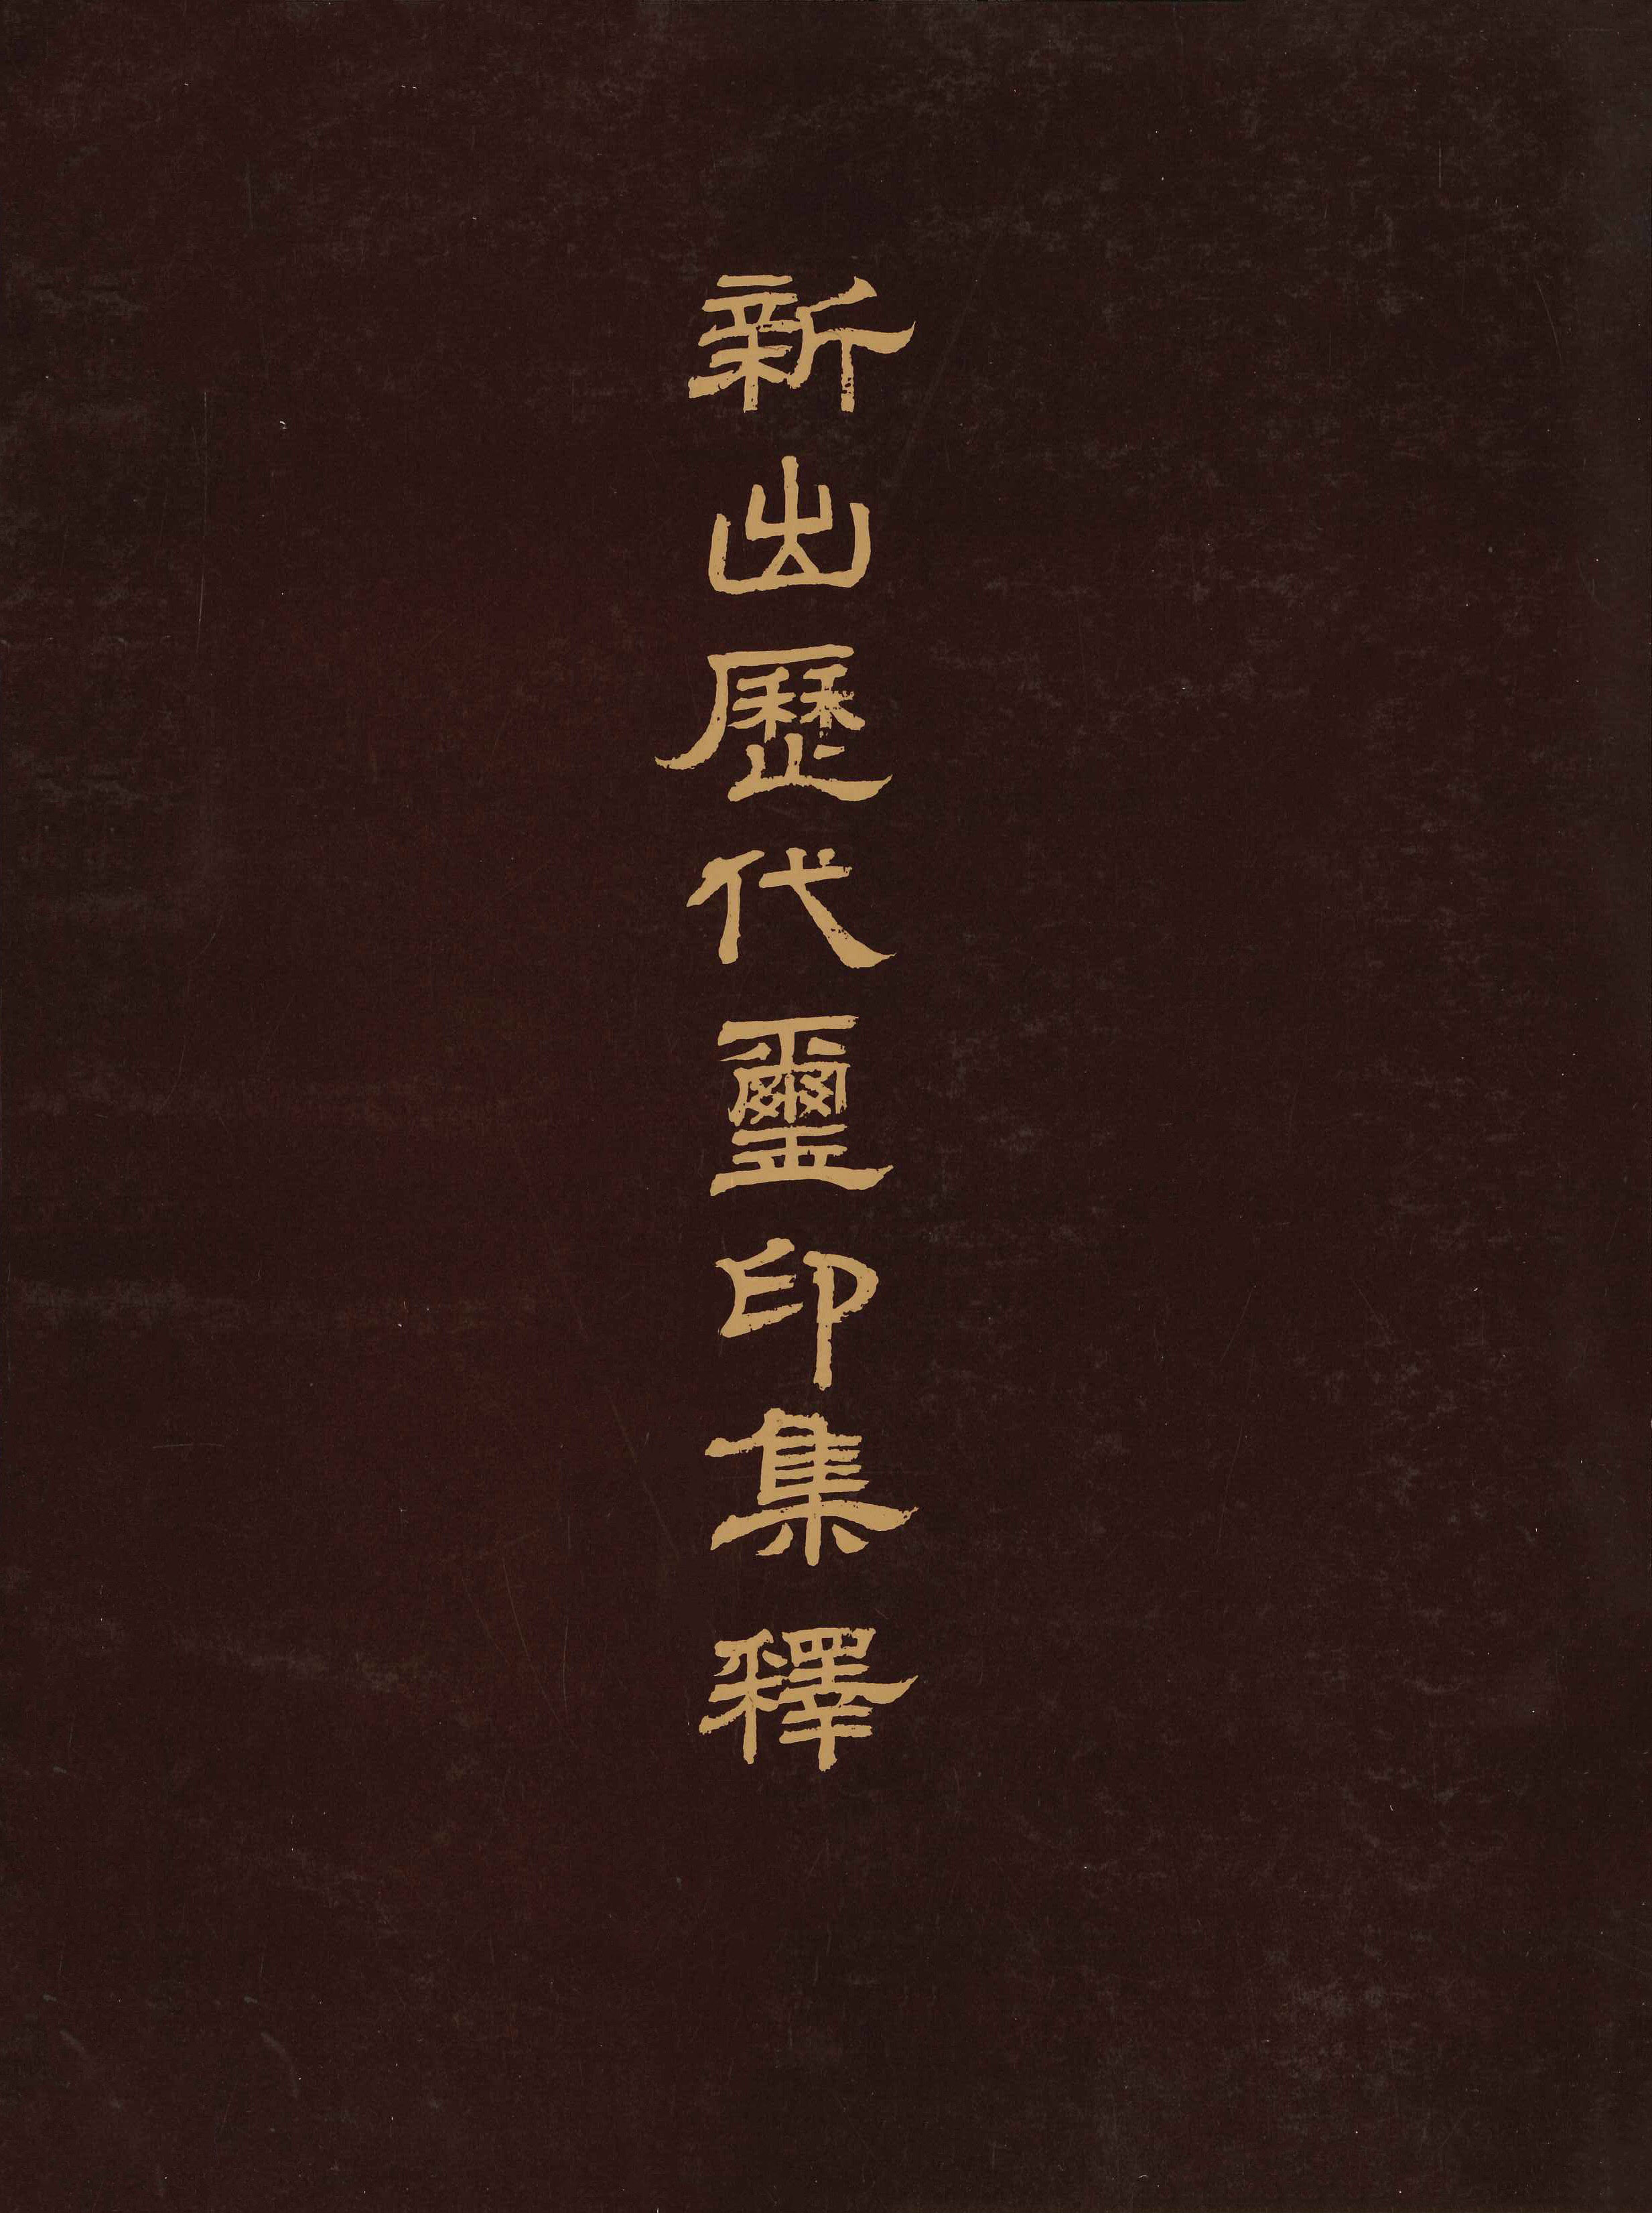 新出歷代璽印集釋